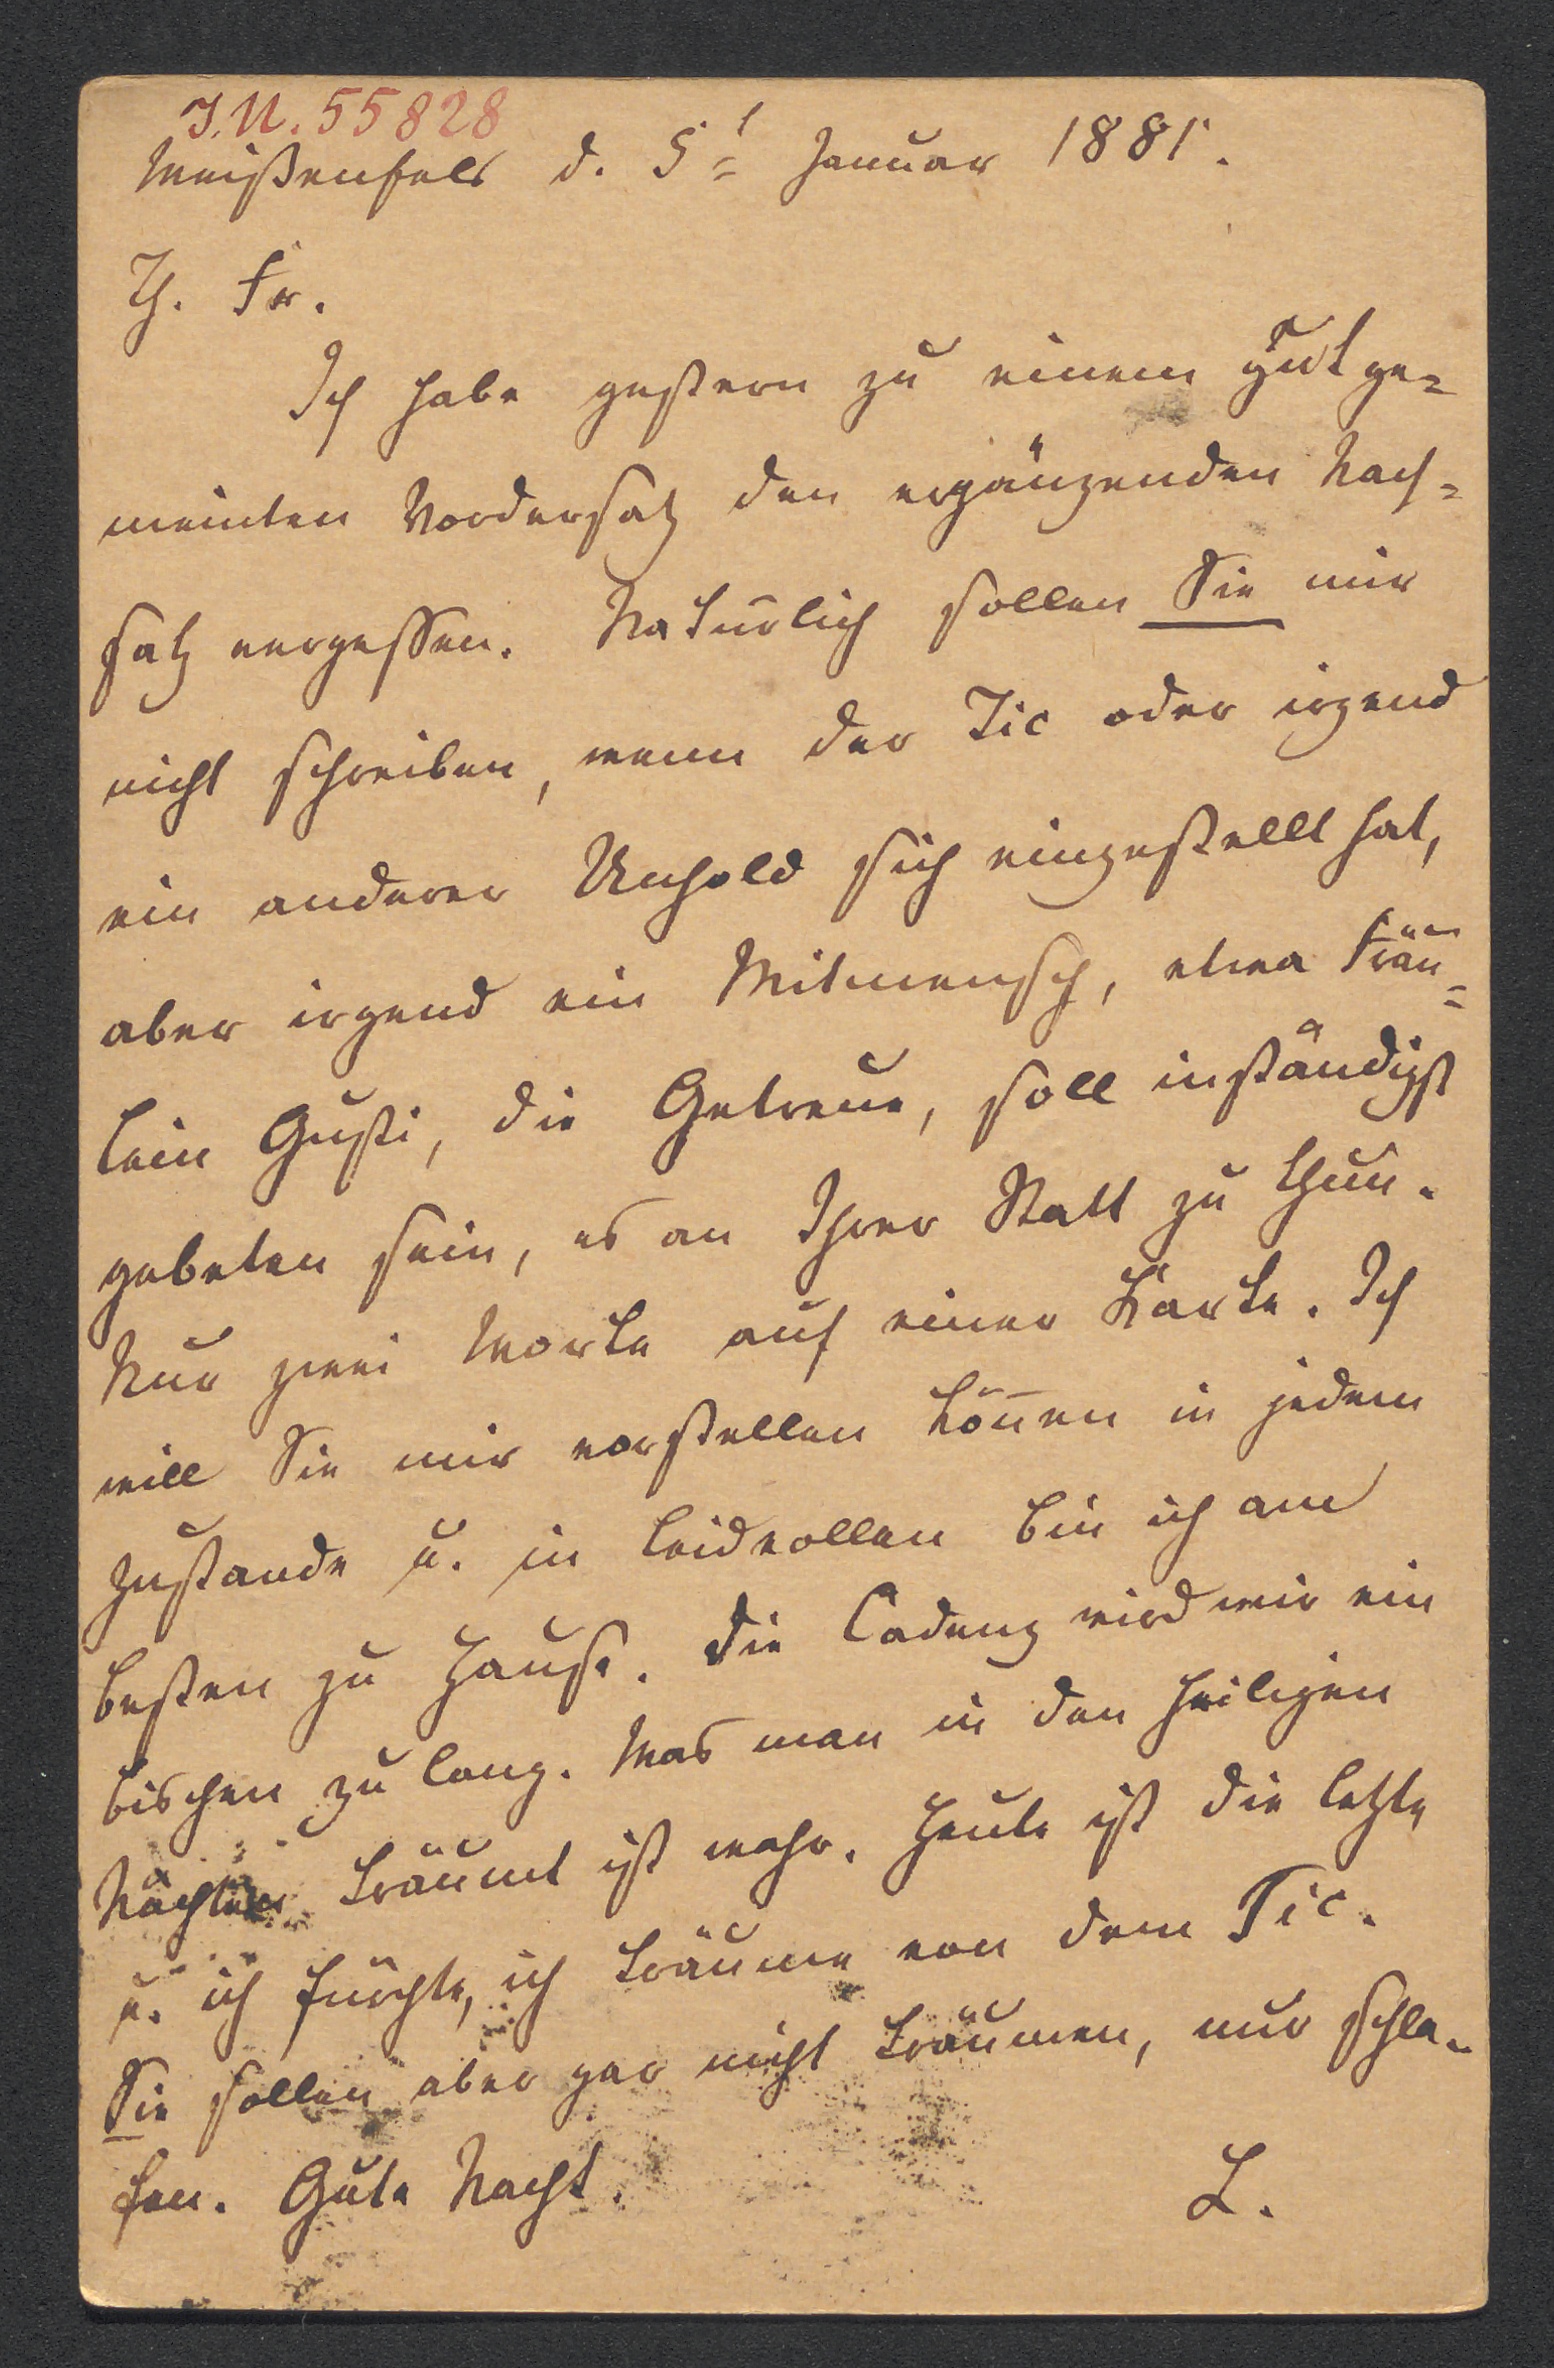 I.N. 55828
Weißenfels d. 5t Januar 1881.
Th. Fr.
Ich habe gestern zu einem gut ge=
meinten Vordersatz den ergänzenden Nach=
satz vergessen. Natürlich sollen Sie mir
nicht schreiben, wenn der Tic oder irgend
ein anderer Unhold sich eingestellt hat,
aber irgend ein Mitmensch, etwa Fräu=
lein Gusti, die Getreue, soll inständigst
gebeten sein, es an Ihrer Statt zu thun.
Nur zwei Worte auf einer Karte. Ich
will Sie mir vorstellen kön̄en in jedem
Zustande u. in leidvollen bin ich am
besten zu Hause. Die Cadenz wird mir ein
bischen zu lang. Was man in den heiligen
Nächten träumt ist wahr. Heute ist die letzte
u. ich fürchte, ich träume von dem Tic.
Sie sollen aber gar nicht träumen, nur schla-
fen. Gute Nacht.
L.